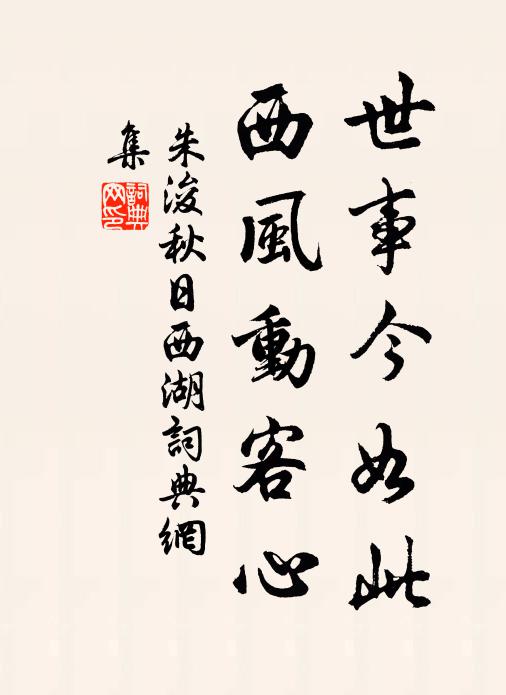 世事今如此
西風動客心
朱浚秋日西湖詞典網
集
詞典網印